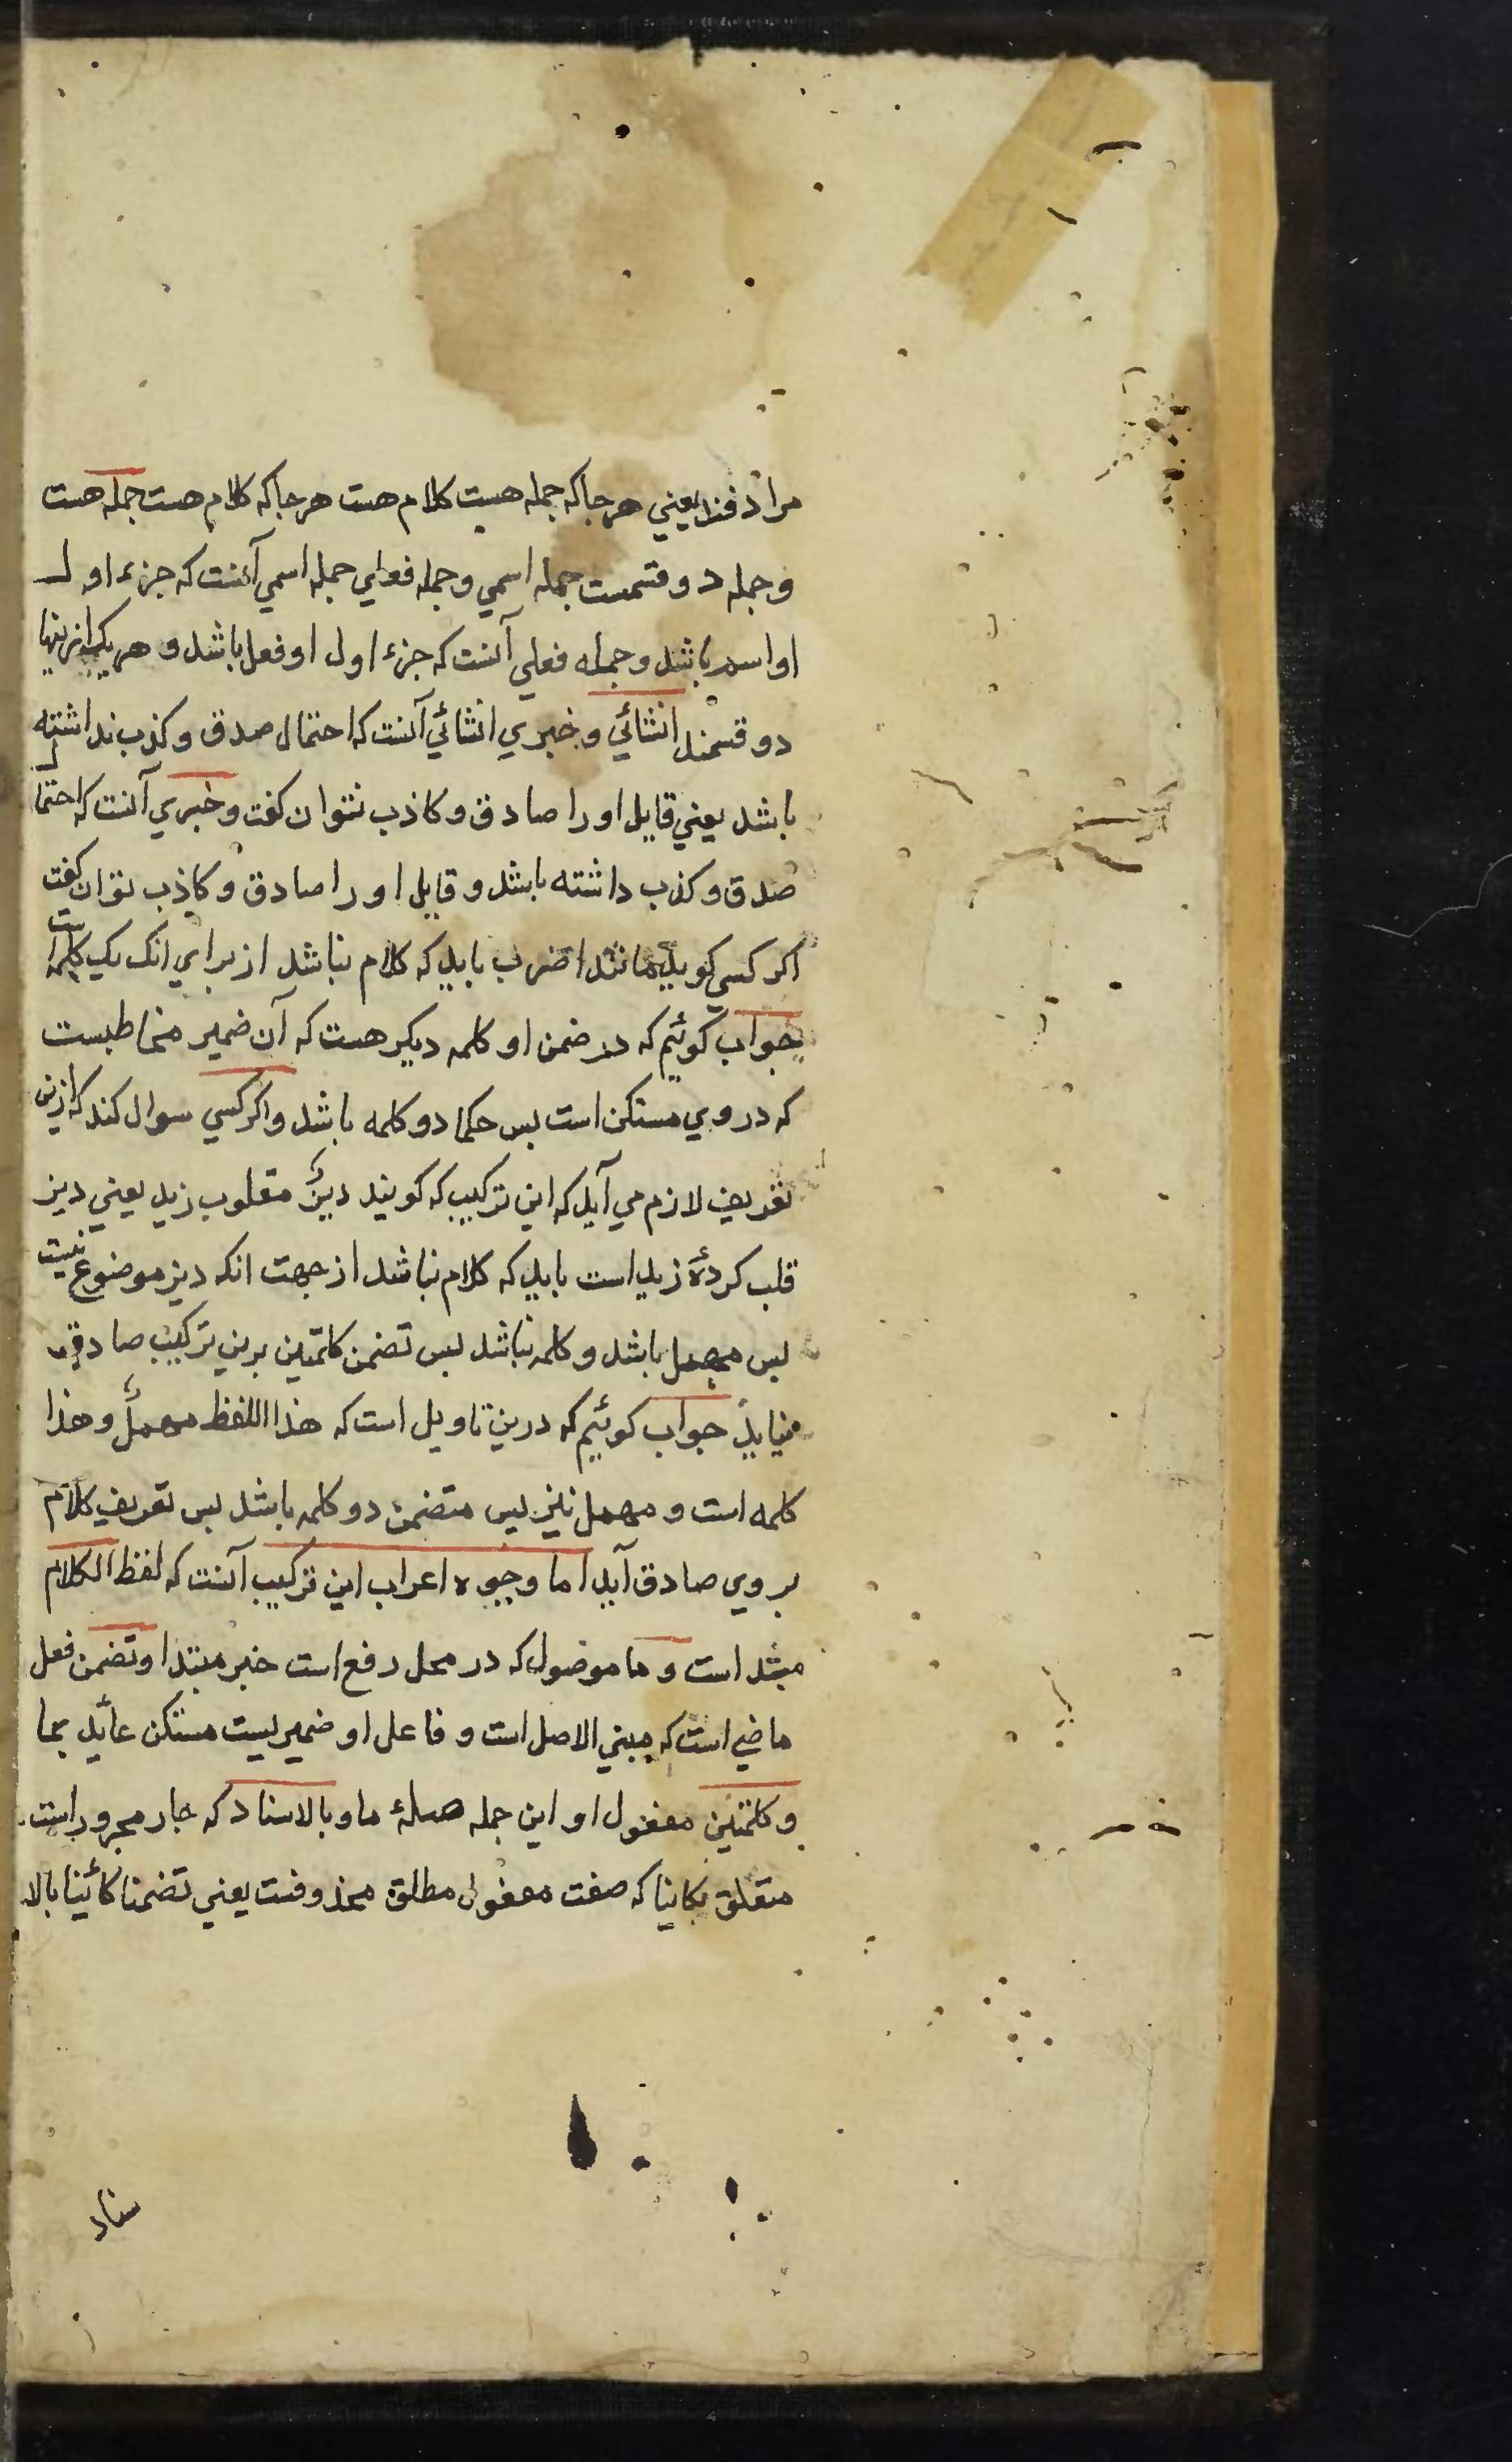 مرادفند یعني هرجا که جمله هست کلام هست هرجا که کلام هست جمله هست
و جمله دو قسمست جمله اسمي و جمله فعلي جمله اسمي آنست که جزء اول
او اسم باشد و جمله فعلي آنست که جزء اول او فعل باشد و هر یک ازینها
دو قسمند انشائي و خبري انشائي آنست که احتمال صدق و کذب نداشته
باشد یعني قایل او را صادق و کاذب نتوان کفت و خبري آنست که احتمال
صدق و کذب داشته باشد و قایل او را صادق و کاذب توان کفت
اکر کسي کوید مانند اضرب باید که کلام نباشد از براي انک یک کلمه است
جواب کوئیم که در ضمن او کلمه دیکر هست که آن ضمیر مخاطبست
که در وي مستکن است بس حکما دو کلمه باشد و اکر کسي سوال کند که ازین
تعریف لازم مي آید که این ترکیب که کویند دیزٌ مقلوب زید یعني دیز
قلب کردهٔ زید است باید که کلام نباشد از جهت انکه دیز موضوع نیست
بس مهمل باشد و کلمه نباشد بس تضمن کلمتین برین ترکیب صادق
نیاید جواب کوئیم که درین تاویل است که هذا اللفظ مهملٌ و هذا
کلمه است و مهمل نیز بس متضمن دو کلمه باشد بس تعریف کلام
بروي صادق آید اما وجوه اعراب این ترکیب آنست که لفظ الکلام
مبتداست و ما موصول که در محل رفع است خبر مبتدا و تضمن فعل
ماضي است که مبني الاصل است و فاعل او ضمیریست مستکن عاید بما
و کلمتین مفعول او این جمله صلهٔ ما و بالاسناد که جار مجرور است
متعلق بکاینا که صفت مفعول مطلق محذوفست یعني تضمنا کائینا بالا
سناد